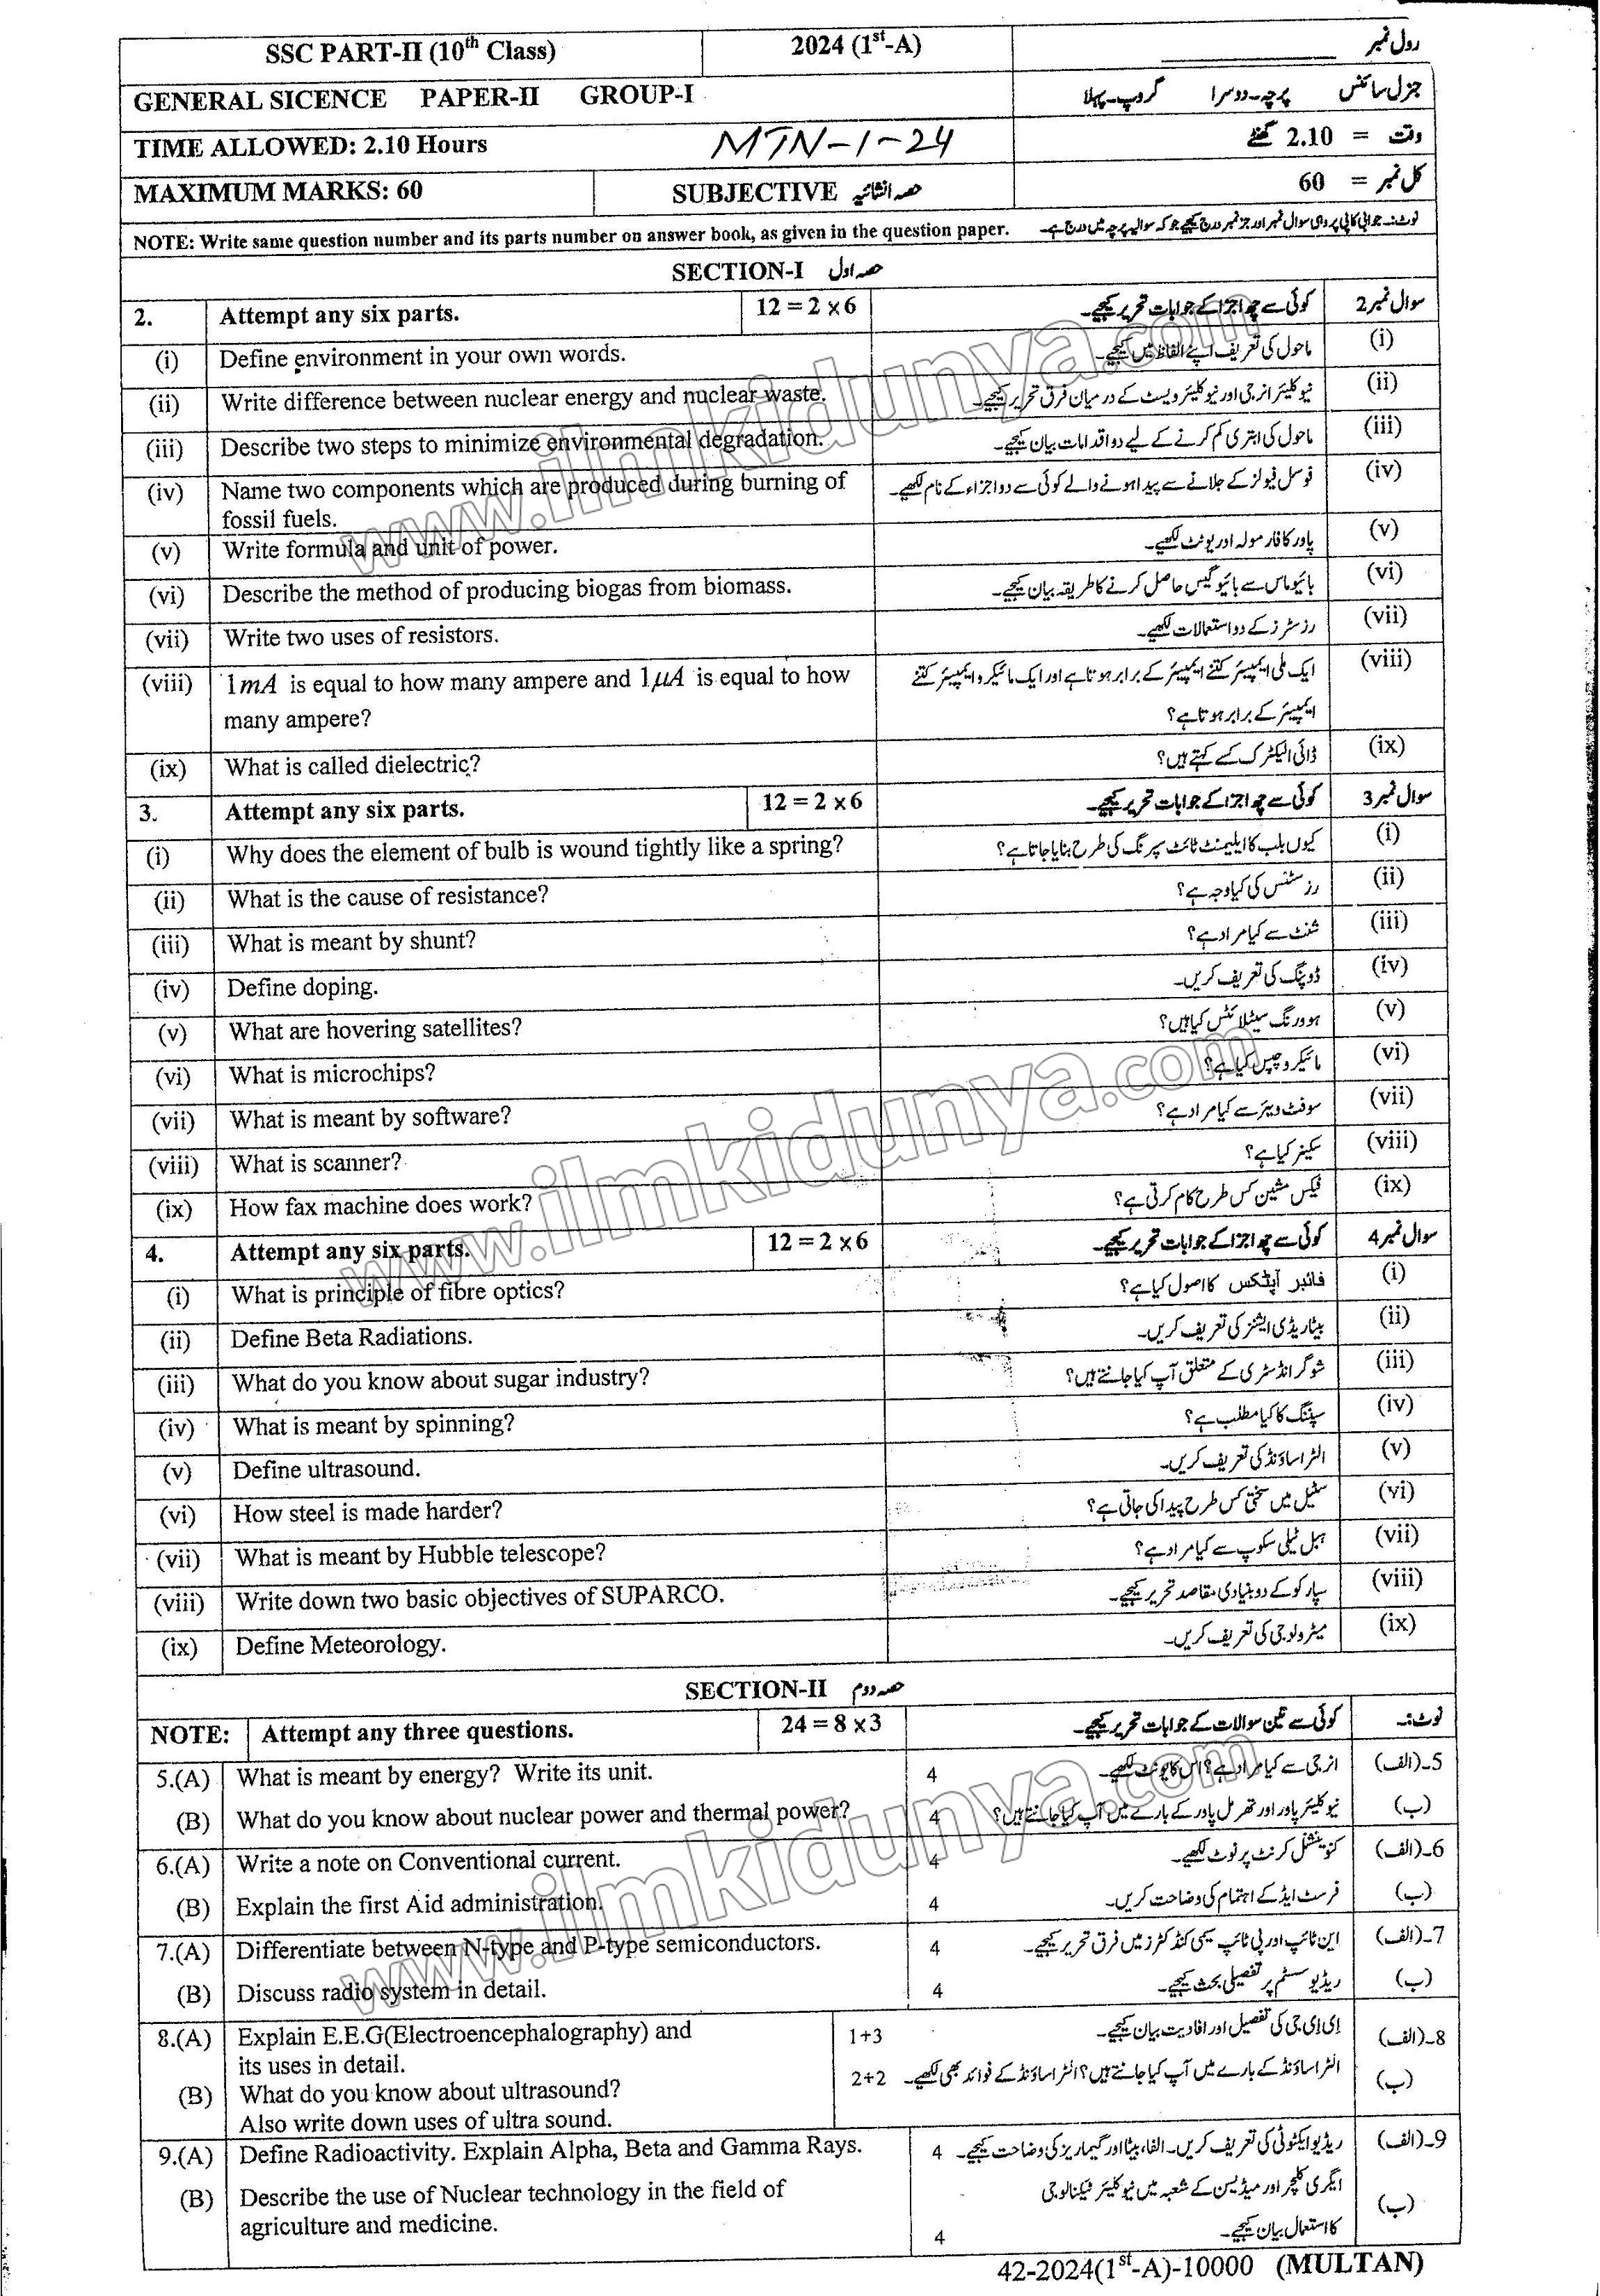 SSC PART-II (10th Class) 2024 (1st-A) رول نمبر
GENERAL SICENCE PAPER-II GROUP-I جنرل سائنس پرچہ۔دوسرا گروپ۔پہلا
TIME ALLOWED: 2.10 Hours MTN-1-24 وقت = 2.10 گھنٹے
MAXIMUM MARKS: 60 SUBJECTIVE حصہ انشائیہ کل نمبر = 60
NOTE: Write same question number and its parts number on answer book, as given in the question paper. نوٹ:۔ جوابی کاپی پر وہی سوال نمبر اور جز نمبر درج کیجیے جو کہ سوالیہ پرچہ میں درج ہے۔
SECTION-I حصہ اول
2. Attempt any six parts. 12 = 2 x 6 کوئی سے چھ اجزا کے جوابات تحریر کیجیے۔ سوال نمبر 2
(i) Define environment in your own words. ماحول کی تعریف اپنے الفاظ میں کیجیے۔ (i)
(ii) Write difference between nuclear energy and nuclear waste. نیوکلیئر انرجی اور نیوکلیئر ویسٹ کے درمیان فرق تحریر کیجیے۔ (ii)
(iii) Describe two steps to minimize environmental degradation. ماحول کی ابتری کم کرنے کے لیے دو اقدامات بیان کیجیے۔ (iii)
(iv) Name two components which are produced during burning of فوسل فیولز کے جلانے سے پیدا ہونے والے کوئی سے دو اجزاء کے نام لکھیے۔ (iv)
fossil fuels.
(v) Write formula and unit of power. پاور کا فارمولہ اور یونٹ لکھیے۔ (v)
(vi) Describe the method of producing biogas from biomass. بائیو ماس سے بائیو گیس حاصل کرنے کا طریقہ بیان کیجیے۔ (vi)
(vii) Write two uses of resistors. رزسٹرز کے دو استعمالات لکھیے۔ (vii)
(viii) 1mA is equal to how many ampere and 1μA is equal to how ایک ملی ایمپیئر کتنے ایمپیئر کے برابر ہوتا ہے اور ایک مائیکرو ایمپیئر کتنے (viii)
many ampere? ایمپیئر کے برابر ہوتا ہے؟
(ix) What is called dielectric? ڈائی الیکٹرک کسے کہتے ہیں؟ (ix)
3. Attempt any six parts. 12 = 2 x 6 کوئی سے چھ اجزا کے جوابات تحریر کیجیے۔ سوال نمبر 3
(i) Why does the element of bulb is wound tightly like a spring? کیوں بلب کا ایلیمنٹ ٹائٹ سپرنگ کی طرح بنایا جاتا ہے؟ (i)
(ii) What is the cause of resistance? رزسٹنس کی کیا وجہ ہے؟ (ii)
(iii) What is meant by shunt? شنٹ سے کیا مراد ہے؟ (iii)
(iv) Define doping. ڈوپنگ کی تعریف کریں۔ (iv)
(v) What are hovering satellites? ہوورنگ سیٹلائٹس کیا ہیں؟ (v)
(vi) What is microchips? مائیکرو چپس کیا ہے؟ (vi)
(vii) What is meant by software? سوفٹ ویئر سے کیا مراد ہے؟ (vii)
(viii) What is scanner? سکینر کیا ہے؟ (viii)
(ix) How fax machine does work? فیکس مشین کس طرح کام کرتی ہے؟ (ix)
4. Attempt any six parts. 12 = 2 x 6 کوئی سے چھ اجزا کے جوابات تحریر کیجیے۔ سوال نمبر 4
(i) What is principle of fibre optics? فائبر آپٹکس کا اصول کیا ہے؟ (i)
(ii) Define Beta Radiations. بیٹا ریڈی ایشنز کی تعریف کریں۔ (ii)
(iii) What do you know about sugar industry? شوگر انڈسٹری کے متعلق آپ کیا جانتے ہیں؟ (iii)
(iv) What is meant by spinning? سپننگ کا کیا مطلب ہے؟ (iv)
(v) Define ultrasound. الٹراساؤنڈ کی تعریف کریں۔ (v)
(vi) How steel is made harder? سٹیل میں سختی کس طرح پیدا کی جاتی ہے؟ (vi)
(vii) What is meant by Hubble telescope? ہبل ٹیلی سکوپ سے کیا مراد ہے؟ (vii)
(viii) Write down two basic objectives of SUPARCO. سپارکو کے دو بنیادی مقاصد تحریر کیجیے۔ (viii)
(ix) Define Meteorology. میٹرولوجی کی تعریف کریں۔ (ix)
SECTION-II حصہ دوم
NOTE: Attempt any three questions. 24 = 8 x 3 کوئی سے تین سوالات کے جوابات تحریر کیجیے۔ نوٹ:۔
5.(A) What is meant by energy? Write its unit. 4 انرجی سے کیا مراد ہے؟ اس کا یونٹ لکھیے۔ 5۔(الف)
(B) What do you know about nuclear power and thermal power? 4 نیوکلیئر پاور اور تھرمل پاور کے بارے میں آپ کیا جانتے ہیں؟ (ب)
6.(A) Write a note on Conventional current. 4 کنونشنل کرنٹ پر نوٹ لکھیے۔ 6۔(الف)
(B) Explain the first Aid administration. 4 فرسٹ ایڈ کے اہتمام کی وضاحت کریں۔ (ب)
7.(A) Differentiate between N-type and P-type semiconductors. 4 این ٹائپ اور پی ٹائپ سیمی کنڈکٹرز میں فرق تحریر کیجیے۔ 7۔(الف)
(B) Discuss radio system in detail. 4 ریڈیو سسٹم پر تفصیلی بحث کیجیے۔ (ب)
8.(A) Explain E.E.G(Electroencephalography) and 1+3 ای ای جی کی تفصیل اور افادیت بیان کیجیے۔ 8۔(الف)
its uses in detail.
(B) What do you know about ultrasound? 2+2 الٹراساؤنڈ کے بارے میں آپ کیا جانتے ہیں؟ الٹراساؤنڈ کے فوائد بھی لکھیے۔ (ب)
Also write down uses of ultra sound.
9.(A) Define Radioactivity. Explain Alpha, Beta and Gamma Rays. 4 ریڈیو ایکٹوٹی کی تعریف کریں۔ الفا، بیٹا اور گیما ریز کی وضاحت کیجیے۔ 9۔(الف)
(B) Describe the use of Nuclear technology in the field of ایگری کلچر اور میڈیسن کے شعبہ میں نیوکلیئر ٹیکنالوجی (ب)
agriculture and medicine. 4 کا استعمال بیان کیجیے۔
42-2024(1st-A)-10000 (MULTAN)
www.ilmkidunya.com
www.ilmkidunya.com
www.ilmkidunya.com